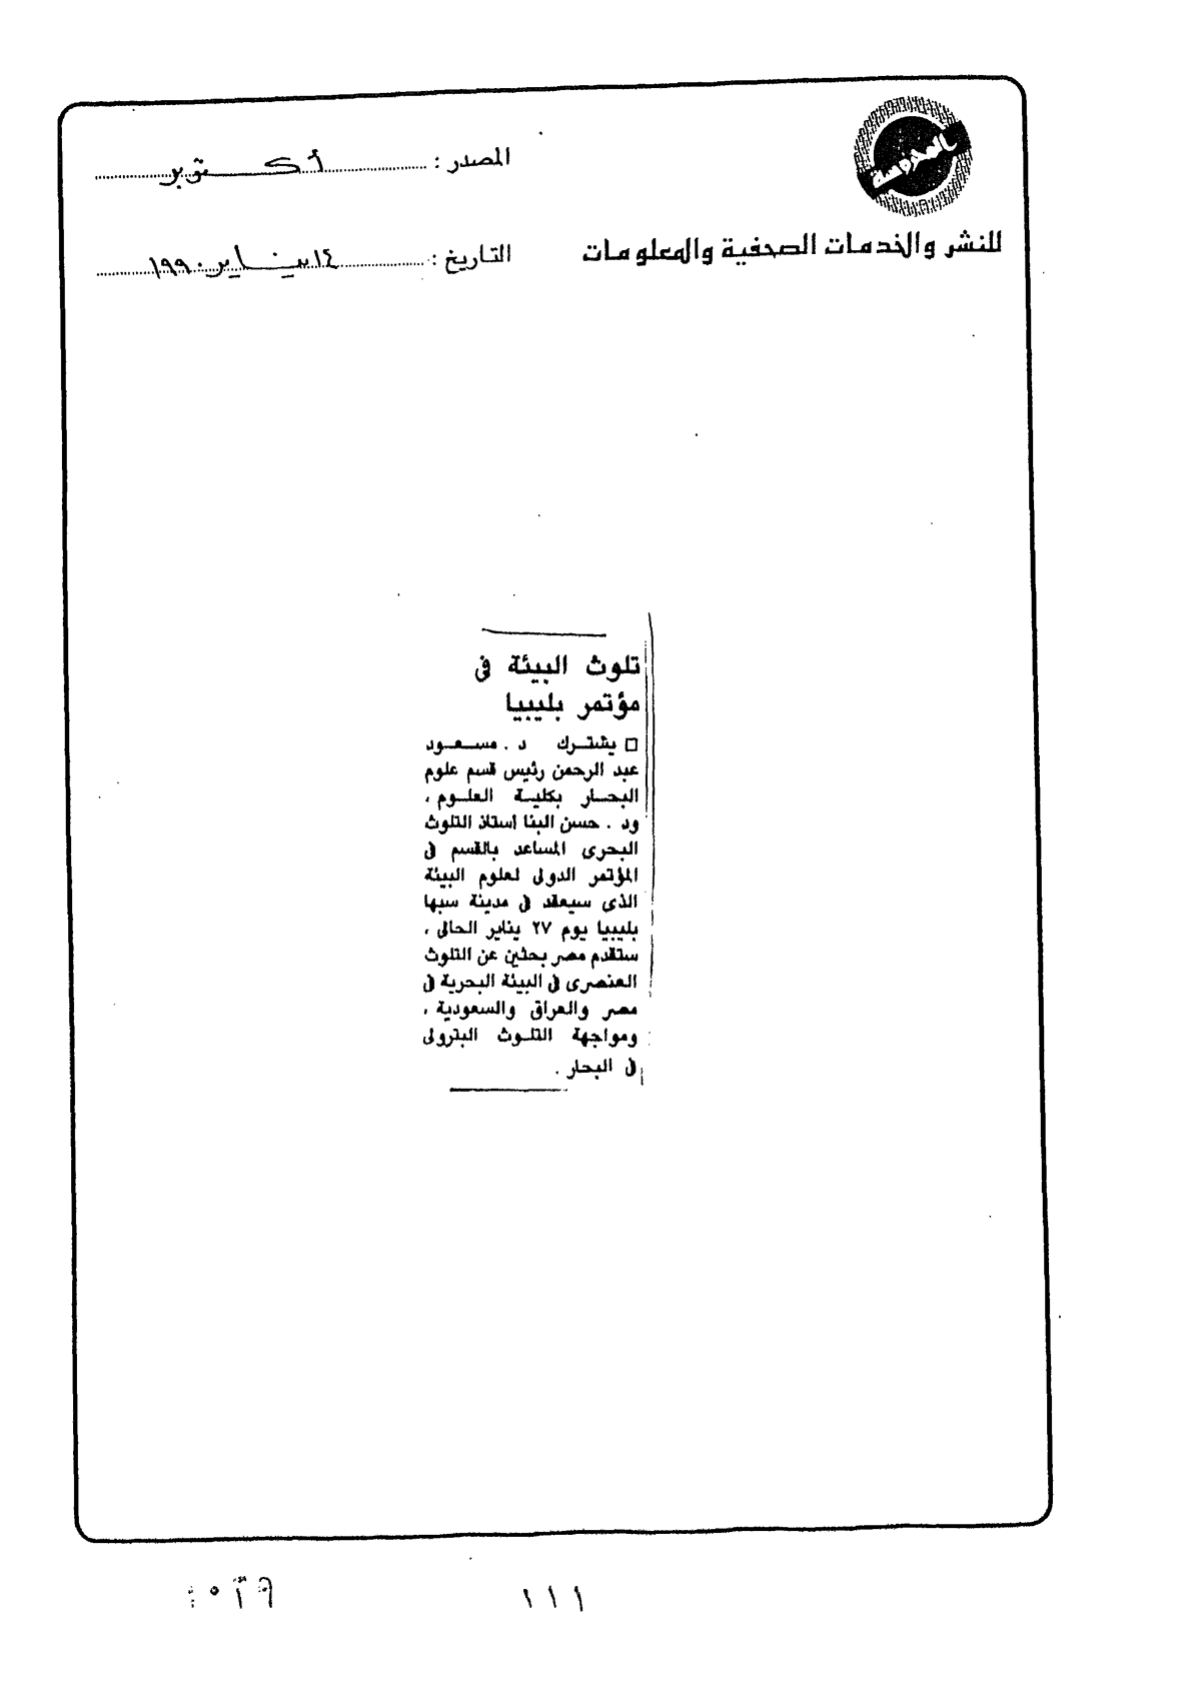 المصدر : أكتوبر
للنشر والخدمات الصحفية والمعلومات
التاريخ : ١٤ يناير ١٩٩٠
تلوث البيئة فى
مؤتمر بليبيا
□ يشترك د . مسعود
عبد الرحمن رئيس قسم علوم
البحار بكلية العلوم ،
ود . حسن البنا استاذ التلوث
البحرى المساعد بالقسم فى
المؤتمر الدولى لعلوم البيئة
الذى سيعقد فى مدينة سبها
بليبيا يوم ٢٧ يناير الحالى ،
ستقدم مصر بحثين عن التلوث
العنصرى فى البيئة البحرية فى
مصر والعراق والسعودية ،
ومواجهة التلوث البترولى
فى البحار .
١١١